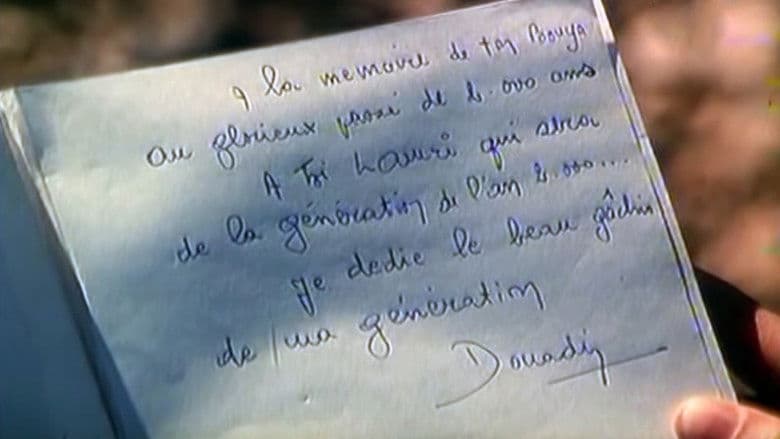 A la memoire de ton Bouya
au glorieux passé de 2.000 ans
A Toi Lauri qui sera
de la génération de l'an 2.000....
je dedie le beau gâchis
de ma génération
Douadi